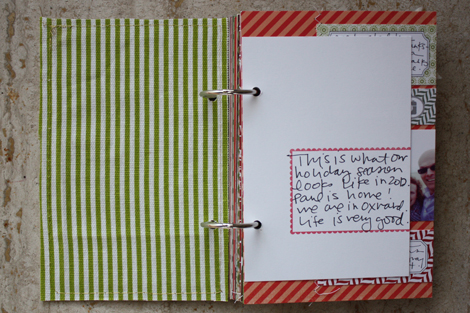 This is what our
holiday season
looks like in 2010.
Paul is home!
we are in Oxnard.
Life is very good.